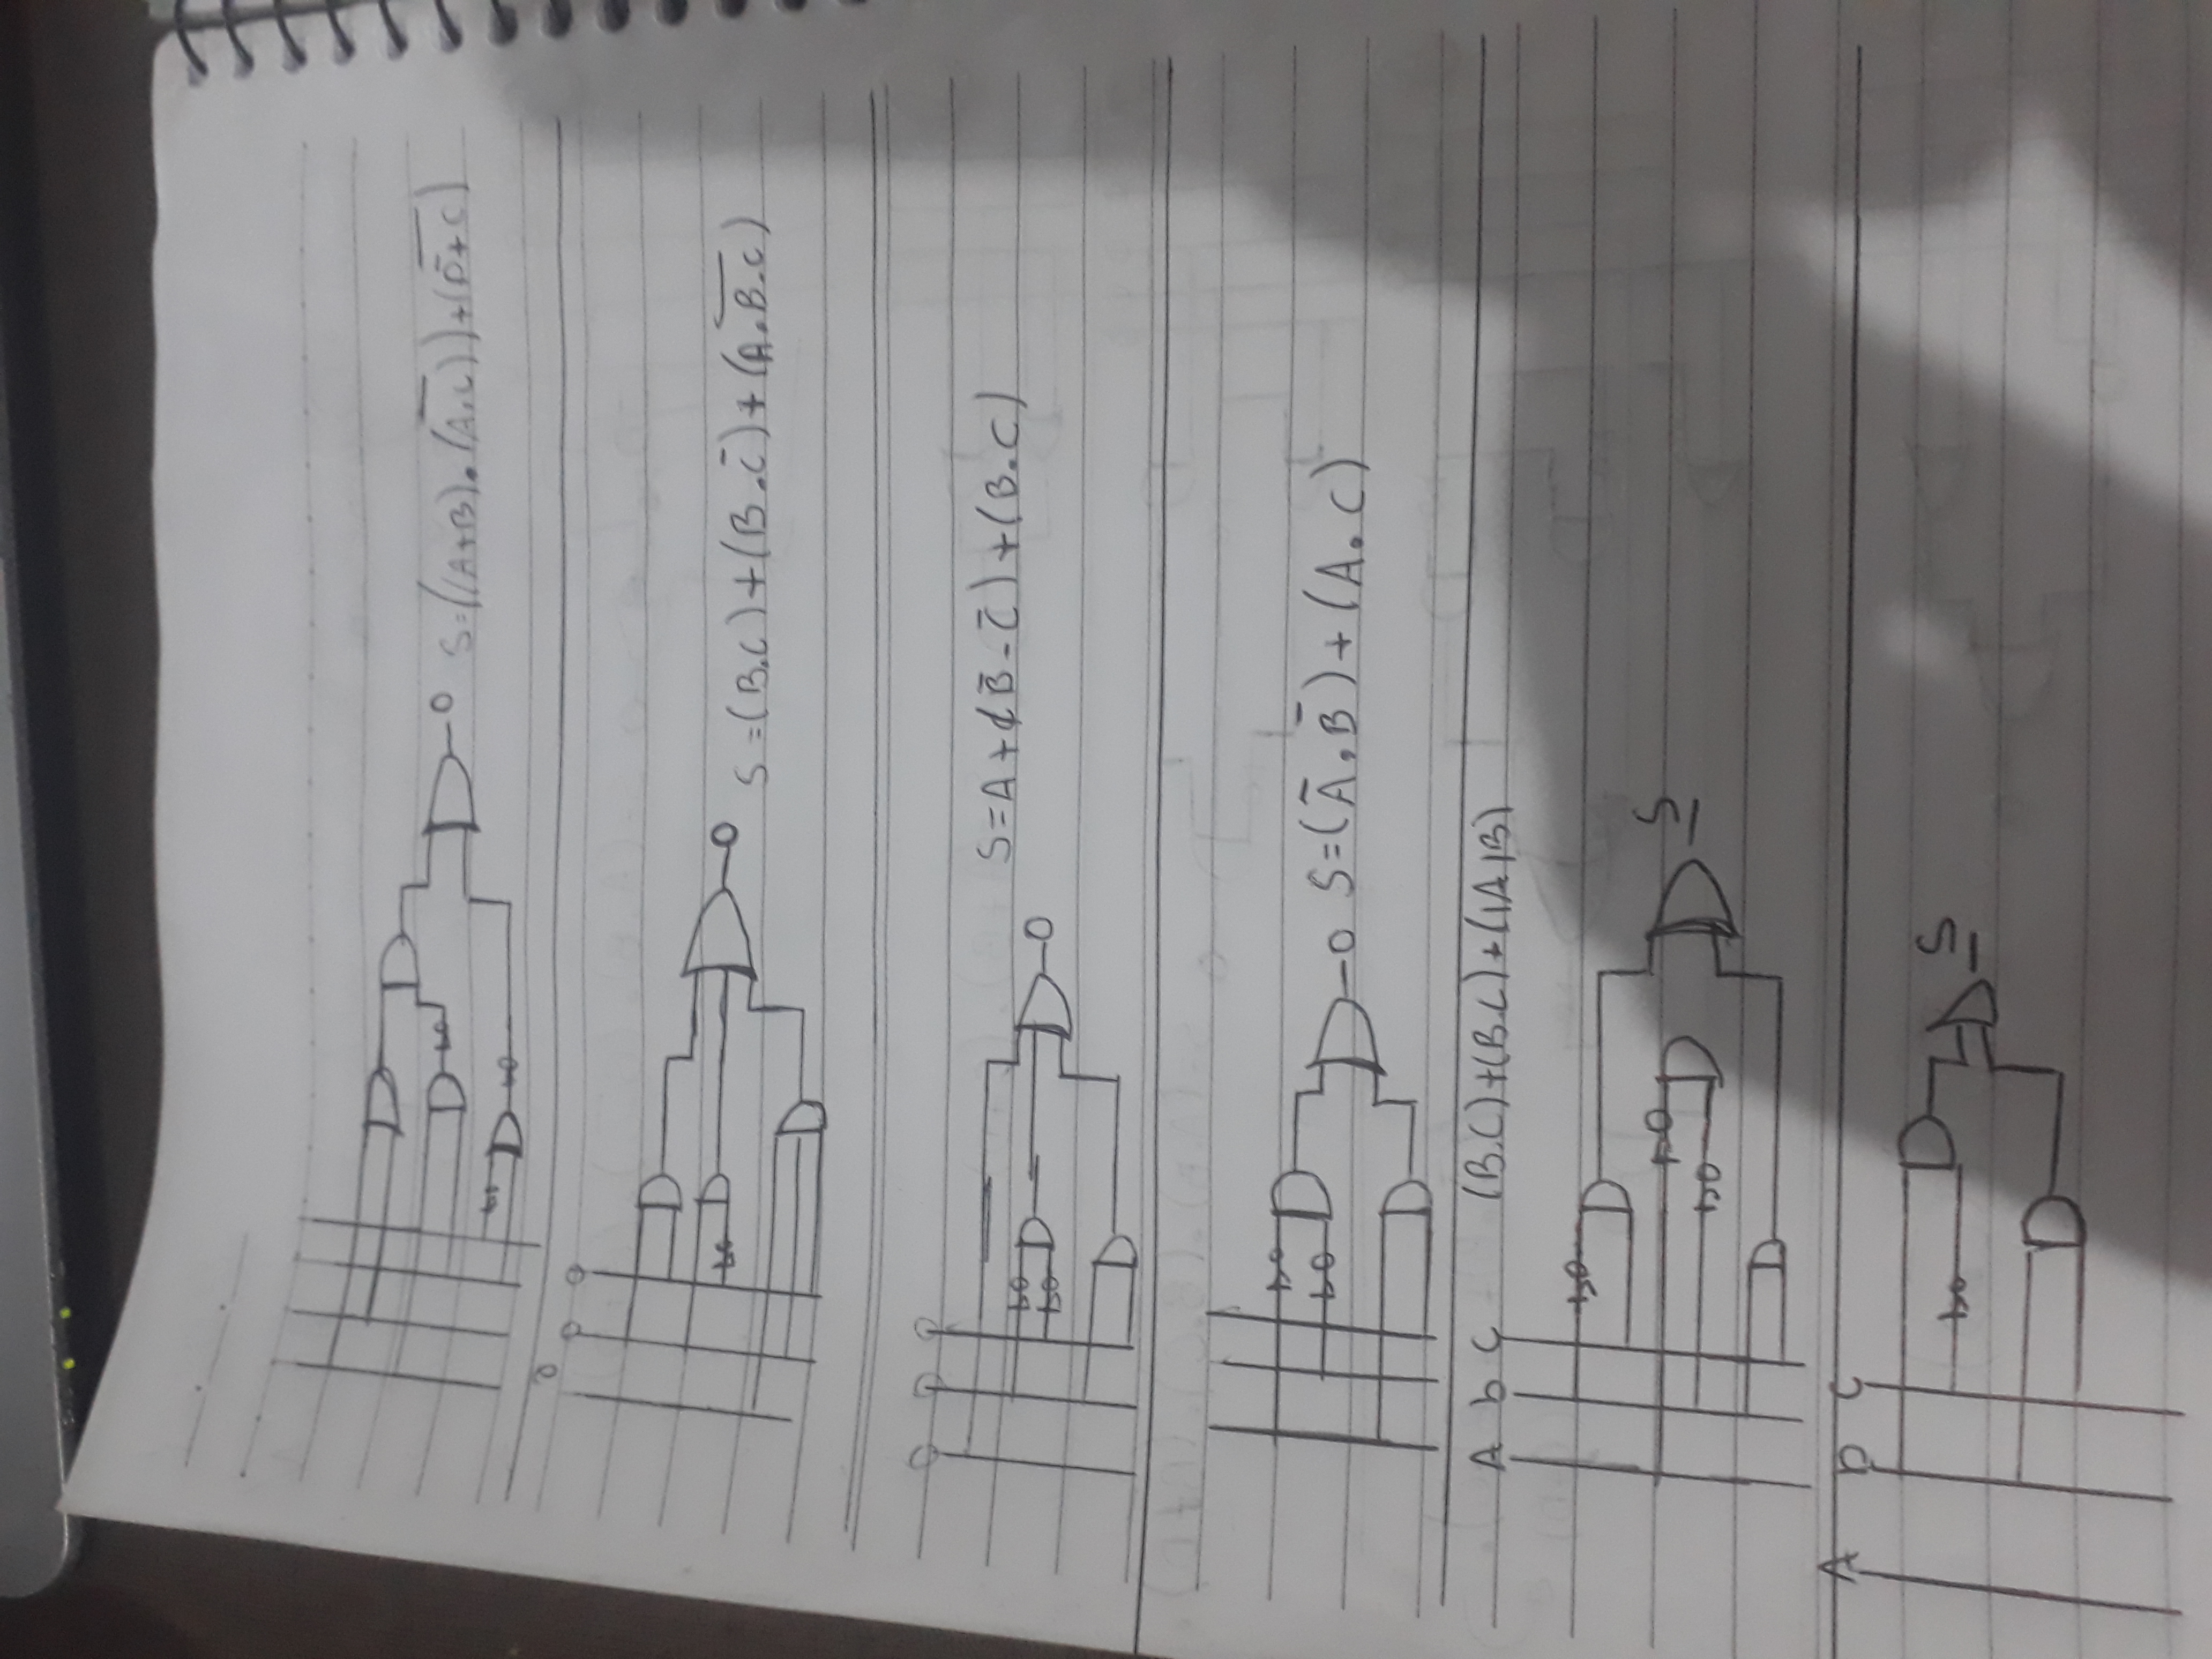 S=((A+B).(A.C̅))+(D̅+C̅)
S=(B.C)+(B.C̅)+(A.B̅.C̅)
S=A+(B̅-C̅)+(B.C)
S=(A̅.B̅)+(A.C)
(B.C)+(B.C)+(1A1B)
A
b
C
S
A
C
S